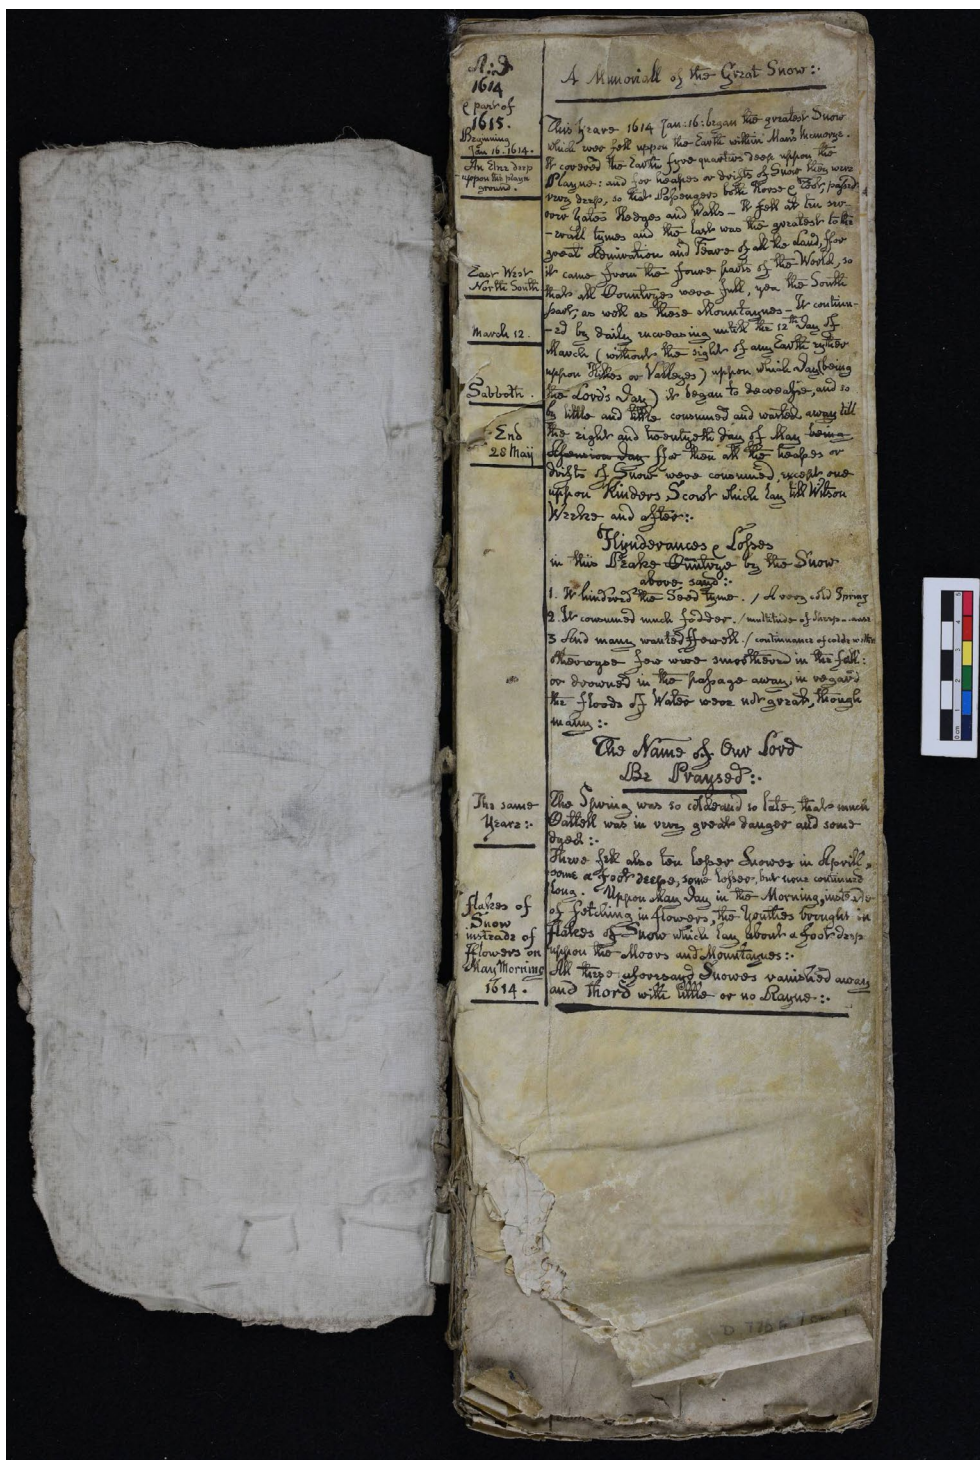 A:D
1614
& part of
1615.
Beginning
Jan 16. 1614.
An Elne deep
uppon the playn
ground.
East West
North South
March 12.
Sabboth.
End
28 May
The same
Yeare:.
flakes of
Snow
insteade of
fflowers on
May Morning
1614.
A Memoriall of the Great Snow:.
This Yeare 1614 Jan: 16: began the greatest Snow
which ever fell uppon the Earth within Mans memorye.
It covered the Earth fyve quarters deep uppon the
Playne: and for heapes or drifts of Snow they were
very deep, so that Passengers both Horse & Foot, passed
over Yates Hedges and Walls – It fell at ten sev-
-erall tymes and the last was the greatest to the
great Admiration and Feare of all the Land, ffor
it came from the foure parts of the World, so
that all Countryes were full, yea the South
part, as well as these Mountaynes – It continu-
-ed by daily increasing untill the 12th Day of
March (without the sight of any Earth eyther
uppon Hilles or Valleyes) uppon which Day (being
the Lord's Day) it began to decrease, and so
by little and little consumed and wasted away till
the eight and twentyeth day of May being
Ascension Day ffor then all the heapes or
drifts of Snow were consumed, except one
uppon Kinders Scout which lay till Witson
Weeke and after:.
Hynderances & Losses
in this Peake Cuntrye by the Snow
above sayd:.
1. It hindered the Seed tyme. / A very cold Spring
2. It consumed much fodder. / multitude of Sheep
3 And many wanted ffewell. / continuance of colde
otherwyse few were smothered in the fall:
or drowned in the passage away, in regard
the floods of Water were not great, though
many:.
The Name of Our Lord
Be Praysed:.
The Spring was so colde and so late, that much
Cattell was in very great danger and some
dyed:.
There fell also ten lesser Snowes in Aprill,
some a foot deepe, some lesser, but none continued
long. Uppon May Day in the Morning, insteade
of fetching in flowers, the Youthes brought in
flakes of Snow which lay about a foot deep
uppon the Moors and Mountaynes:.
All these aforesayd Snowes vanished away
and thoed with little or no Rayne:.